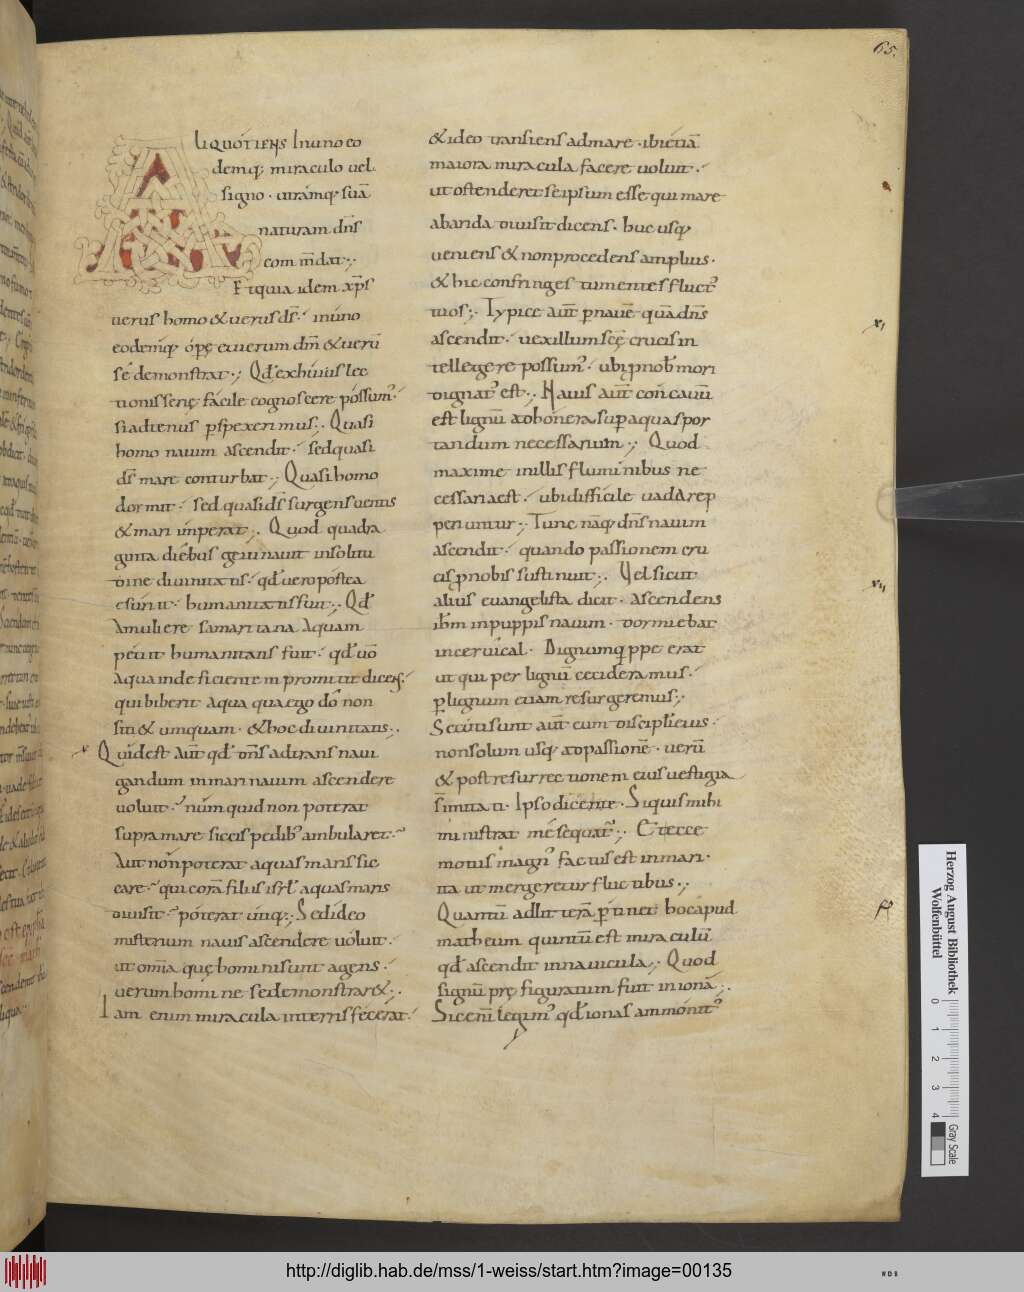 65.
Aliquotiens In uno eo
demq; miraculo uel
signo · utrámq; suā
naturam dn̄s
com m̄dat ·;
Et quia idem xp̄s
uerus homo & uerus ds̄ · in úno
eodemq; ópę et uerum dm̄ & uerū
sé demonstrat ·; Qd̄ ex húius lec
tionis serię fácile cognoscere póssum᾿ ·
si adtenus pspexerimus ·; Quasi
homo nauim ascendit · sed quasi
ds̄ mare conturbat ·; Quasi homo
dormit · sed quasi ds̄ surgens uentis
& mari imperat ·; Quod quadra
ginta diébus ieiunauit insolitu
dine diuinitatis · qd̄ uero póstea
esúriit · humanitatis fuit ·; Qd̄
A muliere samaritana Aquam
petiit humanitatis fuit · qd̄ uō
Aqua indeficientem promittit dicens ·
qui biberit Aqua qua ego dō non
siti& umquam · & hoc diuinitatis ·;
Quid est Aut̄ qd̄ dn̄s ad trans naui
gandum in mari nauim ascendere
uoluit · núm quid non poterat
supra mare siccis pedib; ambularet ·
Aut nón poterat aquas maris sic
care · qui corā filiis isrl̄ aquas maris
diuisit · póterat útiq; ·; Sed ídeo
misterium nauis ascendere uóluit ·
ut om̄ia quę homini sunt agens ·
uerum homine se demonstrar& ·;
Iam enim miracula in terris fécerat ·
& ideo transiens ad mare · ibi etiā
maiora miracula facere uoluit ·
ut ostenderet se ipsum esse qui mare
ab arida diuisit dicens · huc usq;
ueniens & non procedens amplius ·
& hic confringes tumentes fluct᾿
tuos ·; Typice aut̄ p nauē quā dn̄s
ascendit · uexillum scę̄ crucis in
tellegere possum᾿ · ubi p nob̄ mori
dignat᾿ est ·; Nauis aut̄ con cauū
est lignū ad onera sup aquas por
tandum necessarium ·; Quod
maxime in illis fluminibus ne
cessaria est · ubi difficile uada rep
periuntur ·; Tunc náq; dn̄s nauim
ascendit · quando passionem cru
cis p nobis sustinuit ·; Uel sicut
alius euangelista dicit · ascendens
ih̄m in puppis nauim · dormiebat
in ceruical · Dignumq; ppe erat
ut qui per lignū cecideramus ·
p lignum etiam resurgeremus ·;
Secuti sunt aut̄ eum discipl̄i eius ·
non solum usq; ad passionē · uerū
& post resurrectionem eius uestigia
s̄mitati · Ipso dicente · Si quis mihi
ministrat mé sequat᾿ ·; Et ecce
motus magn᾿ factus est in mari ·
ita ut mergeretur fluctibus ·;
Quantū ad litterā ptinet hoc apud
matheum quintū est miraculū
qd̄ ascendit in nauicula ·; Quod
signū pręfiguratum fuit in ionā ·;
Sic enī legim᾿ qd̄ ionas ammónit᾿
Herzog August Bibliothek
Wolfenbüttel
0 1 2 3 4
Gray Scale
http://diglib.hab.de/mss/1-weiss/start.htm?image=00135